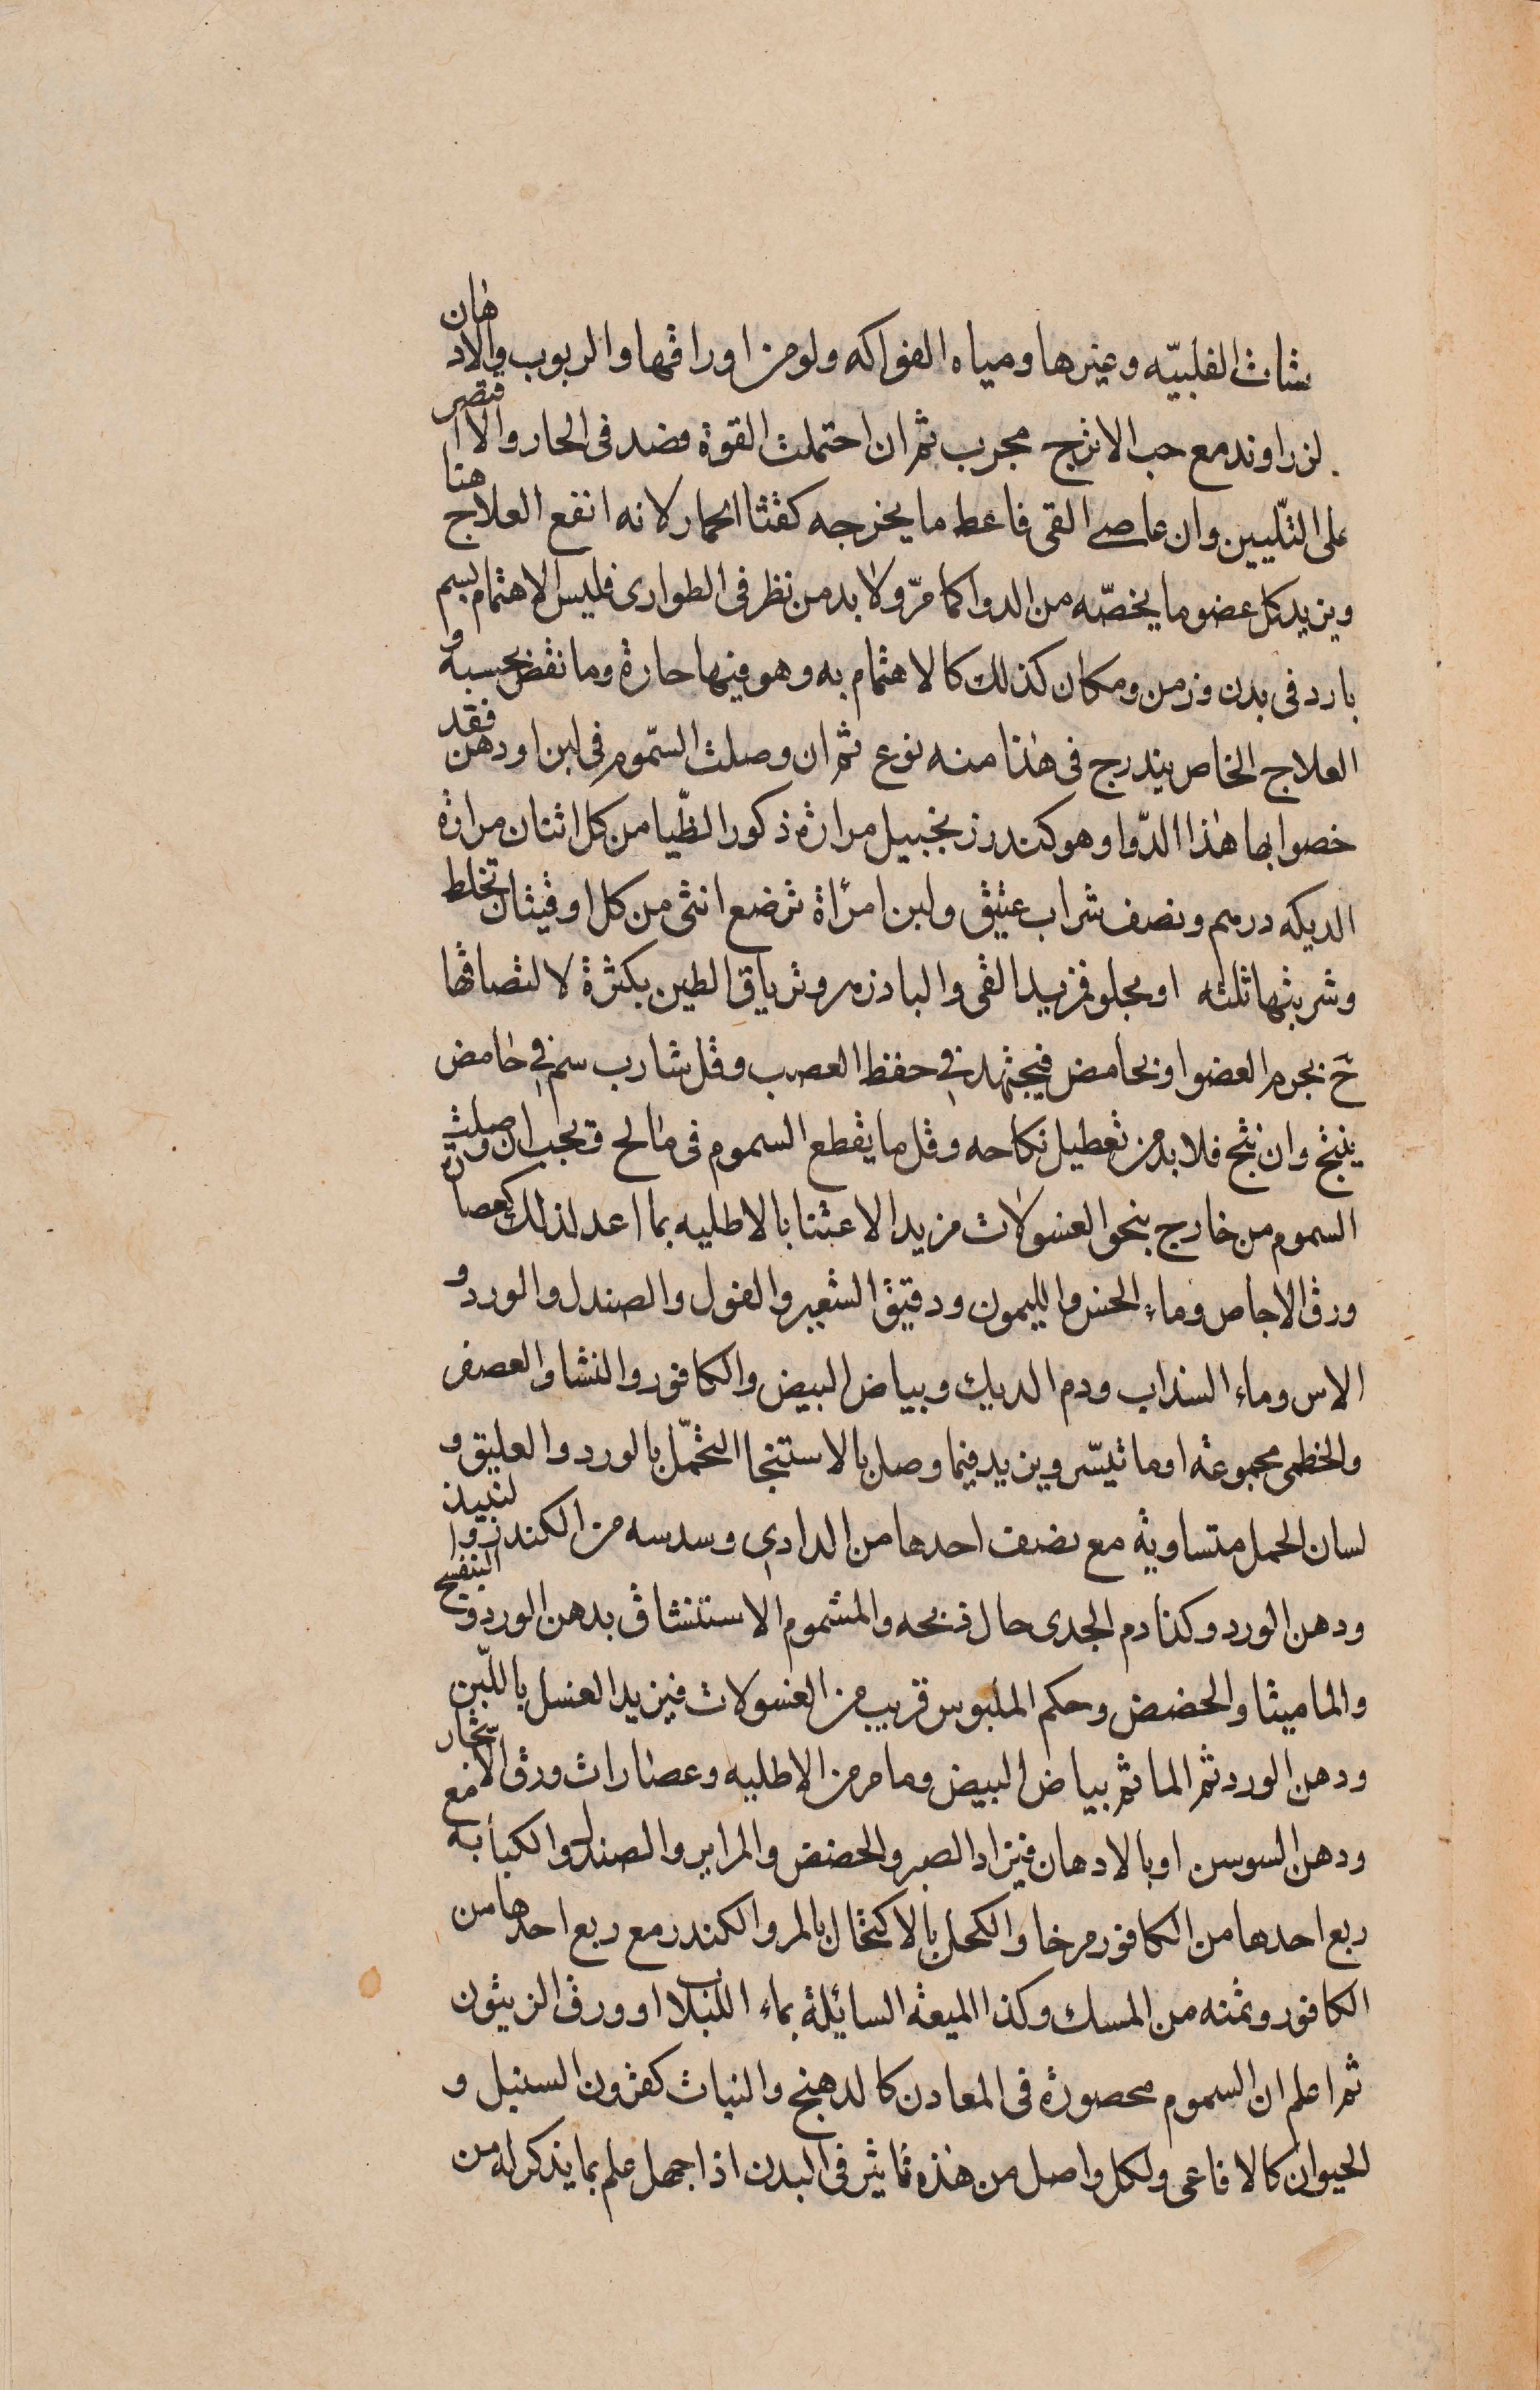 شات القلبيّه وغيرها ومياه الفواكه ولو من اوراقها والربوب والادهان
لزراوند مع حب الاترج مجرب ثم ان احتملت القوة فصد فى الحار والا اقتصر
على التليين وان عاصى القى فاعط ما يخرجه كقثا الحمار لانه انفع العلاج هنا
ويزيد كل عضو ما يخصّه من الدوا كما مرّ ولا بد من نظر فى الطوارى فليس الاهتمام بسم
بارد فى بدن وزمن ومكان كذلك كالاهتمام به وهو فيها حارة وما نقض بحسبه و
العلاج الخاص يندرج فى هذا منه نوع ثم ان وصلت السّموم فى لبن او دهن فقد
خصوا بها هذا الدّوا وهو كندر زنجبيل مرارة ذكور الظّبا من كل اثنان مرارة
الديكه درهم ونصف شراب عتيق ولبن امرٔاة ترضع انثى من كل اوقيتان تخلط
وشربتها ثلثه او بحلو فمزيد القى والبادزهر وترياق الطين بكثرة لالتصاقها
حٓ بجرم العضو او بحامض فيجتهد فى حفظ العصب وقل شارب سم فى حامض
ينتج وان نتج فلا بد من تعطيل نكاحه وقل ما يقطع السموم فى مالح ويجب ان وصلت
السموم من خارج بنحو الغسولات مزيد الاعتنا بالاطليه بما اعد لذلك كعصارة
ورق الاجاص وماء الخس والليمون ودقيق الشعير والفول والصندل والورد و
الاس وماء السذاب ودم الديك وبياض البيض والكافور والنشا والعصفر
والخطمى مجموعة او ما تيسّر ويزيد فيما وصل بالاستنجا التحمّل بالورد والعليق و
لسان الحمل متساوية مع نصف احدها من الدادى وسدسه من الكندر والنبيذ
ودهن الورد وكذا دم الجدى حال ذبحه والمشموم الاستنشاق بدهن الورد والبنفسج
والماميثا والحضض وحكم الملبوس قريب من الغسولات فيزيد الغسل باللّبن
ودهن الورد ثم الما ثم بياض البيض وما مر من الاطليه وعصارات ورق الاشجار
ودهن السوسن او بالادهان فيزاد الصبر والحضض والمراير والصندل والكبابه مع
ربع احدها من الكافور مرخا والكحل بالاكتحال بالمر والكندر مع ربع احدها من
الكافور وثمنه من المسك وكذا الميعة السائلة بماء اللبلاب او ورق الزيتون
ثم اعلم ان السموم محصورة فى المعادن كالدهنج والنبات كقرون السنبل و
الحيوان كالافاعى ولكل واصل من هذه تاثير فى البدن اذا جهل علم بما يذكر له من